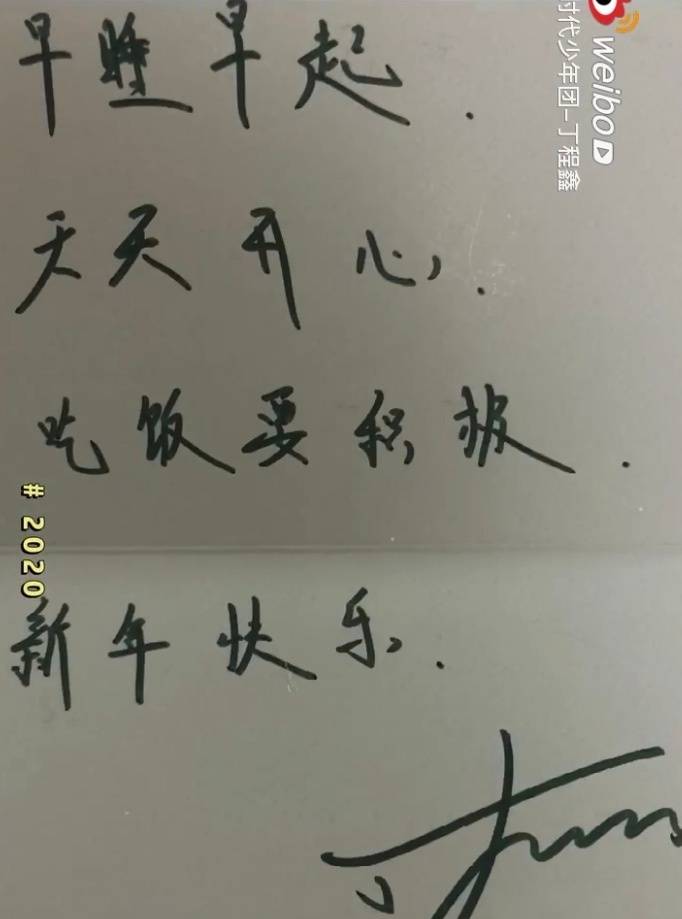 早睡早起.
天天开心.
吃饭要积极.
新年快乐.
# 2020
weibo
时代少年团-丁程鑫